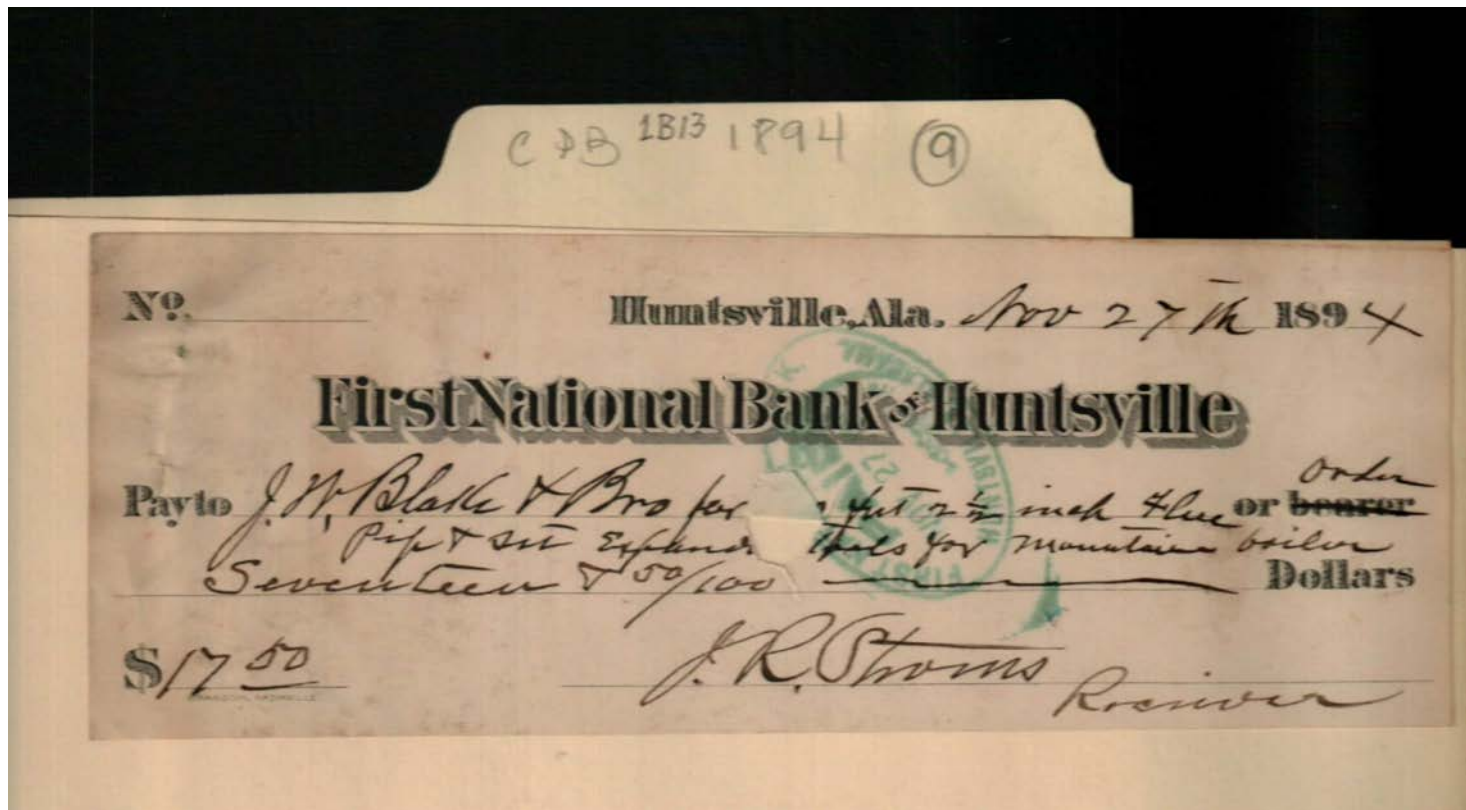 C DB 1B13 1894 9
No. Huntsville, Ala. Nov 27th 1894
First National Bank OF Huntsville
order
Pay to J. W. Blake & Bro for fut 2 1/2 inch Flue or bearer
Pip & Set Expand tools for mountain boiler
Seventeen & 50/100 Dollars
$ 17 50 J. R. Stroms
Reciver
FIRST
NOV
27